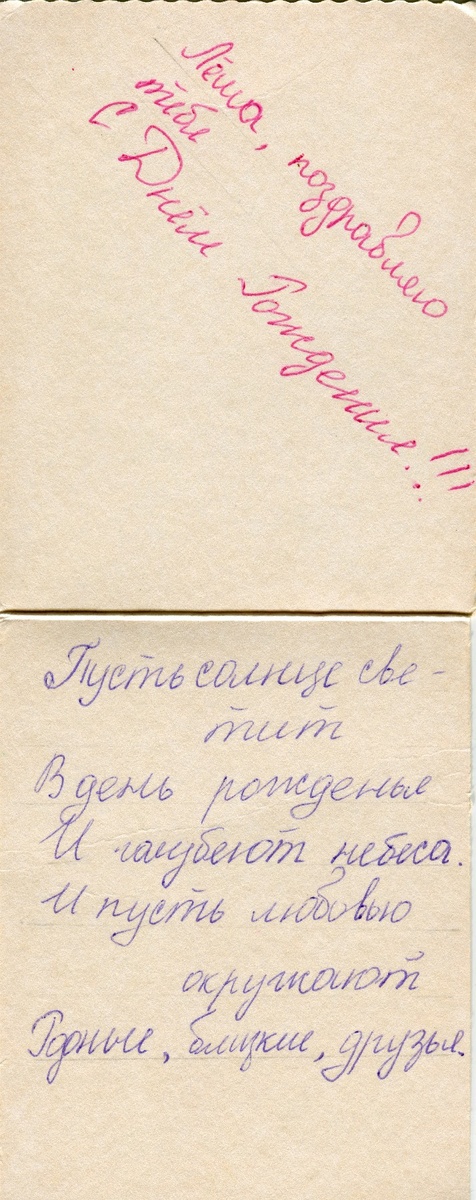 Лёша, поздравляю
тебя
С Днём Рождения!!!
Пусть солнце све-
тит
В день рожденья
И голубеют небеса.
И пусть любовью
окружают
Родные, близкие, друзья.